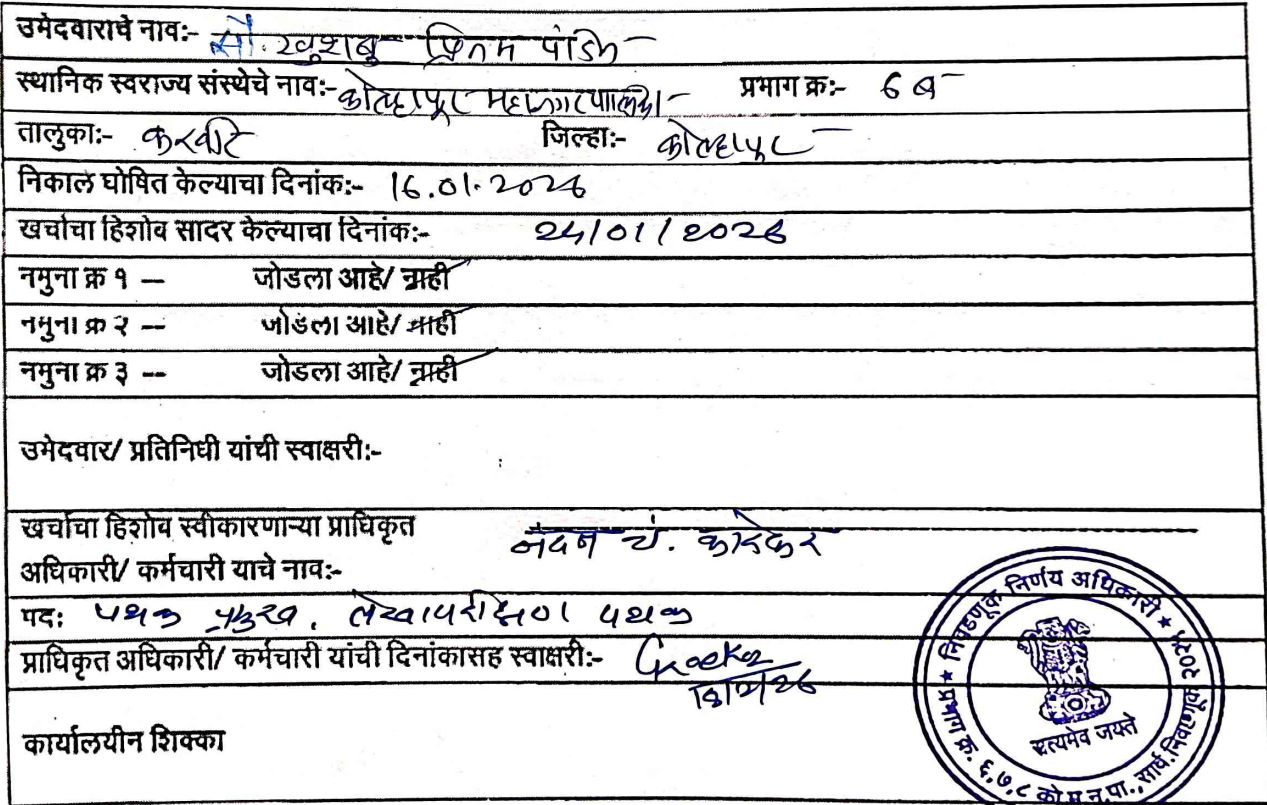 उमेदवाराचे नाव:- सौ. खुशबु प्रितम पंडित
स्थानिक स्वराज्य संस्थेचे नाव:- कोल्हापूर महानगरपालिका प्रभाग क्र:- 6 ब
तालुका:- करवीर जिल्हा:- कोल्हापूर
निकाल घोषित केल्याचा दिनांक:- 16.01.2026
खर्चाचा हिशोब सादर केल्याचा दिनांक:- 24/01/2026
नमुना क्र १ – जोडला आहे/ नाही
नमुना क्र २ -- जोडला आहे/ नाही
नमुना क्र ३ -- जोडला आहे/ नाही
उमेदवार/ प्रतिनिधी यांची स्वाक्षरी:-
खर्चाचा हिशोब स्वीकारणाऱ्या प्राधिकृत
अधिकारी/ कर्मचारी याचे नाव:- चं.
पद: पथक प्रमुख. लेखापरीक्षण पथक
प्राधिकृत अधिकारी/ कर्मचारी यांची दिनांकासह स्वाक्षरी:-
कार्यालयीन शिक्का
निवडणूक निर्णय अधिकारी ★
★ प्रभाग क्र. ६,७,८ को.म.न.पा., सार्व.निवडणूक २०२५
सत्यमेव जयते